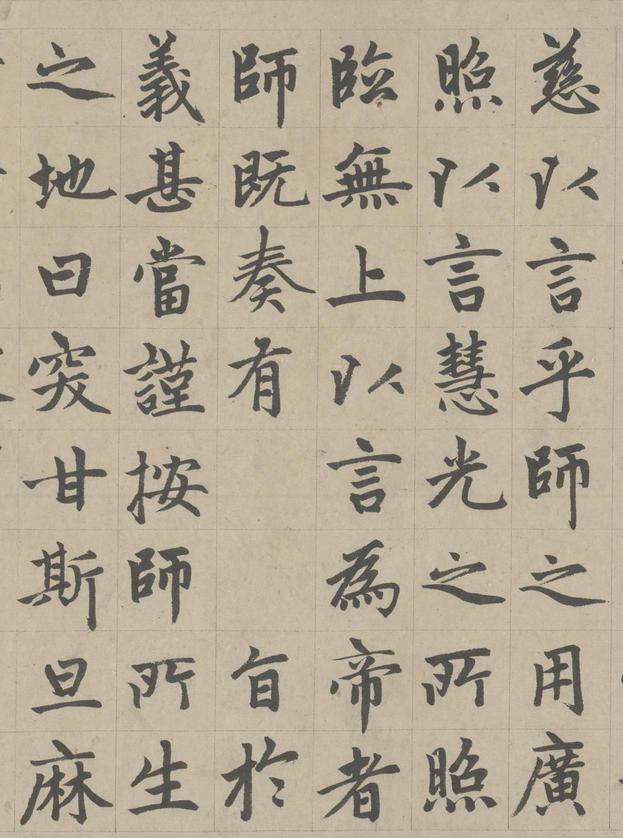 慈以言乎師之用廣
照以言慧光之所照
臨無上以言為帝者
師既奏有旨於
義甚當謹按師所生
之地曰突甘斯旦麻